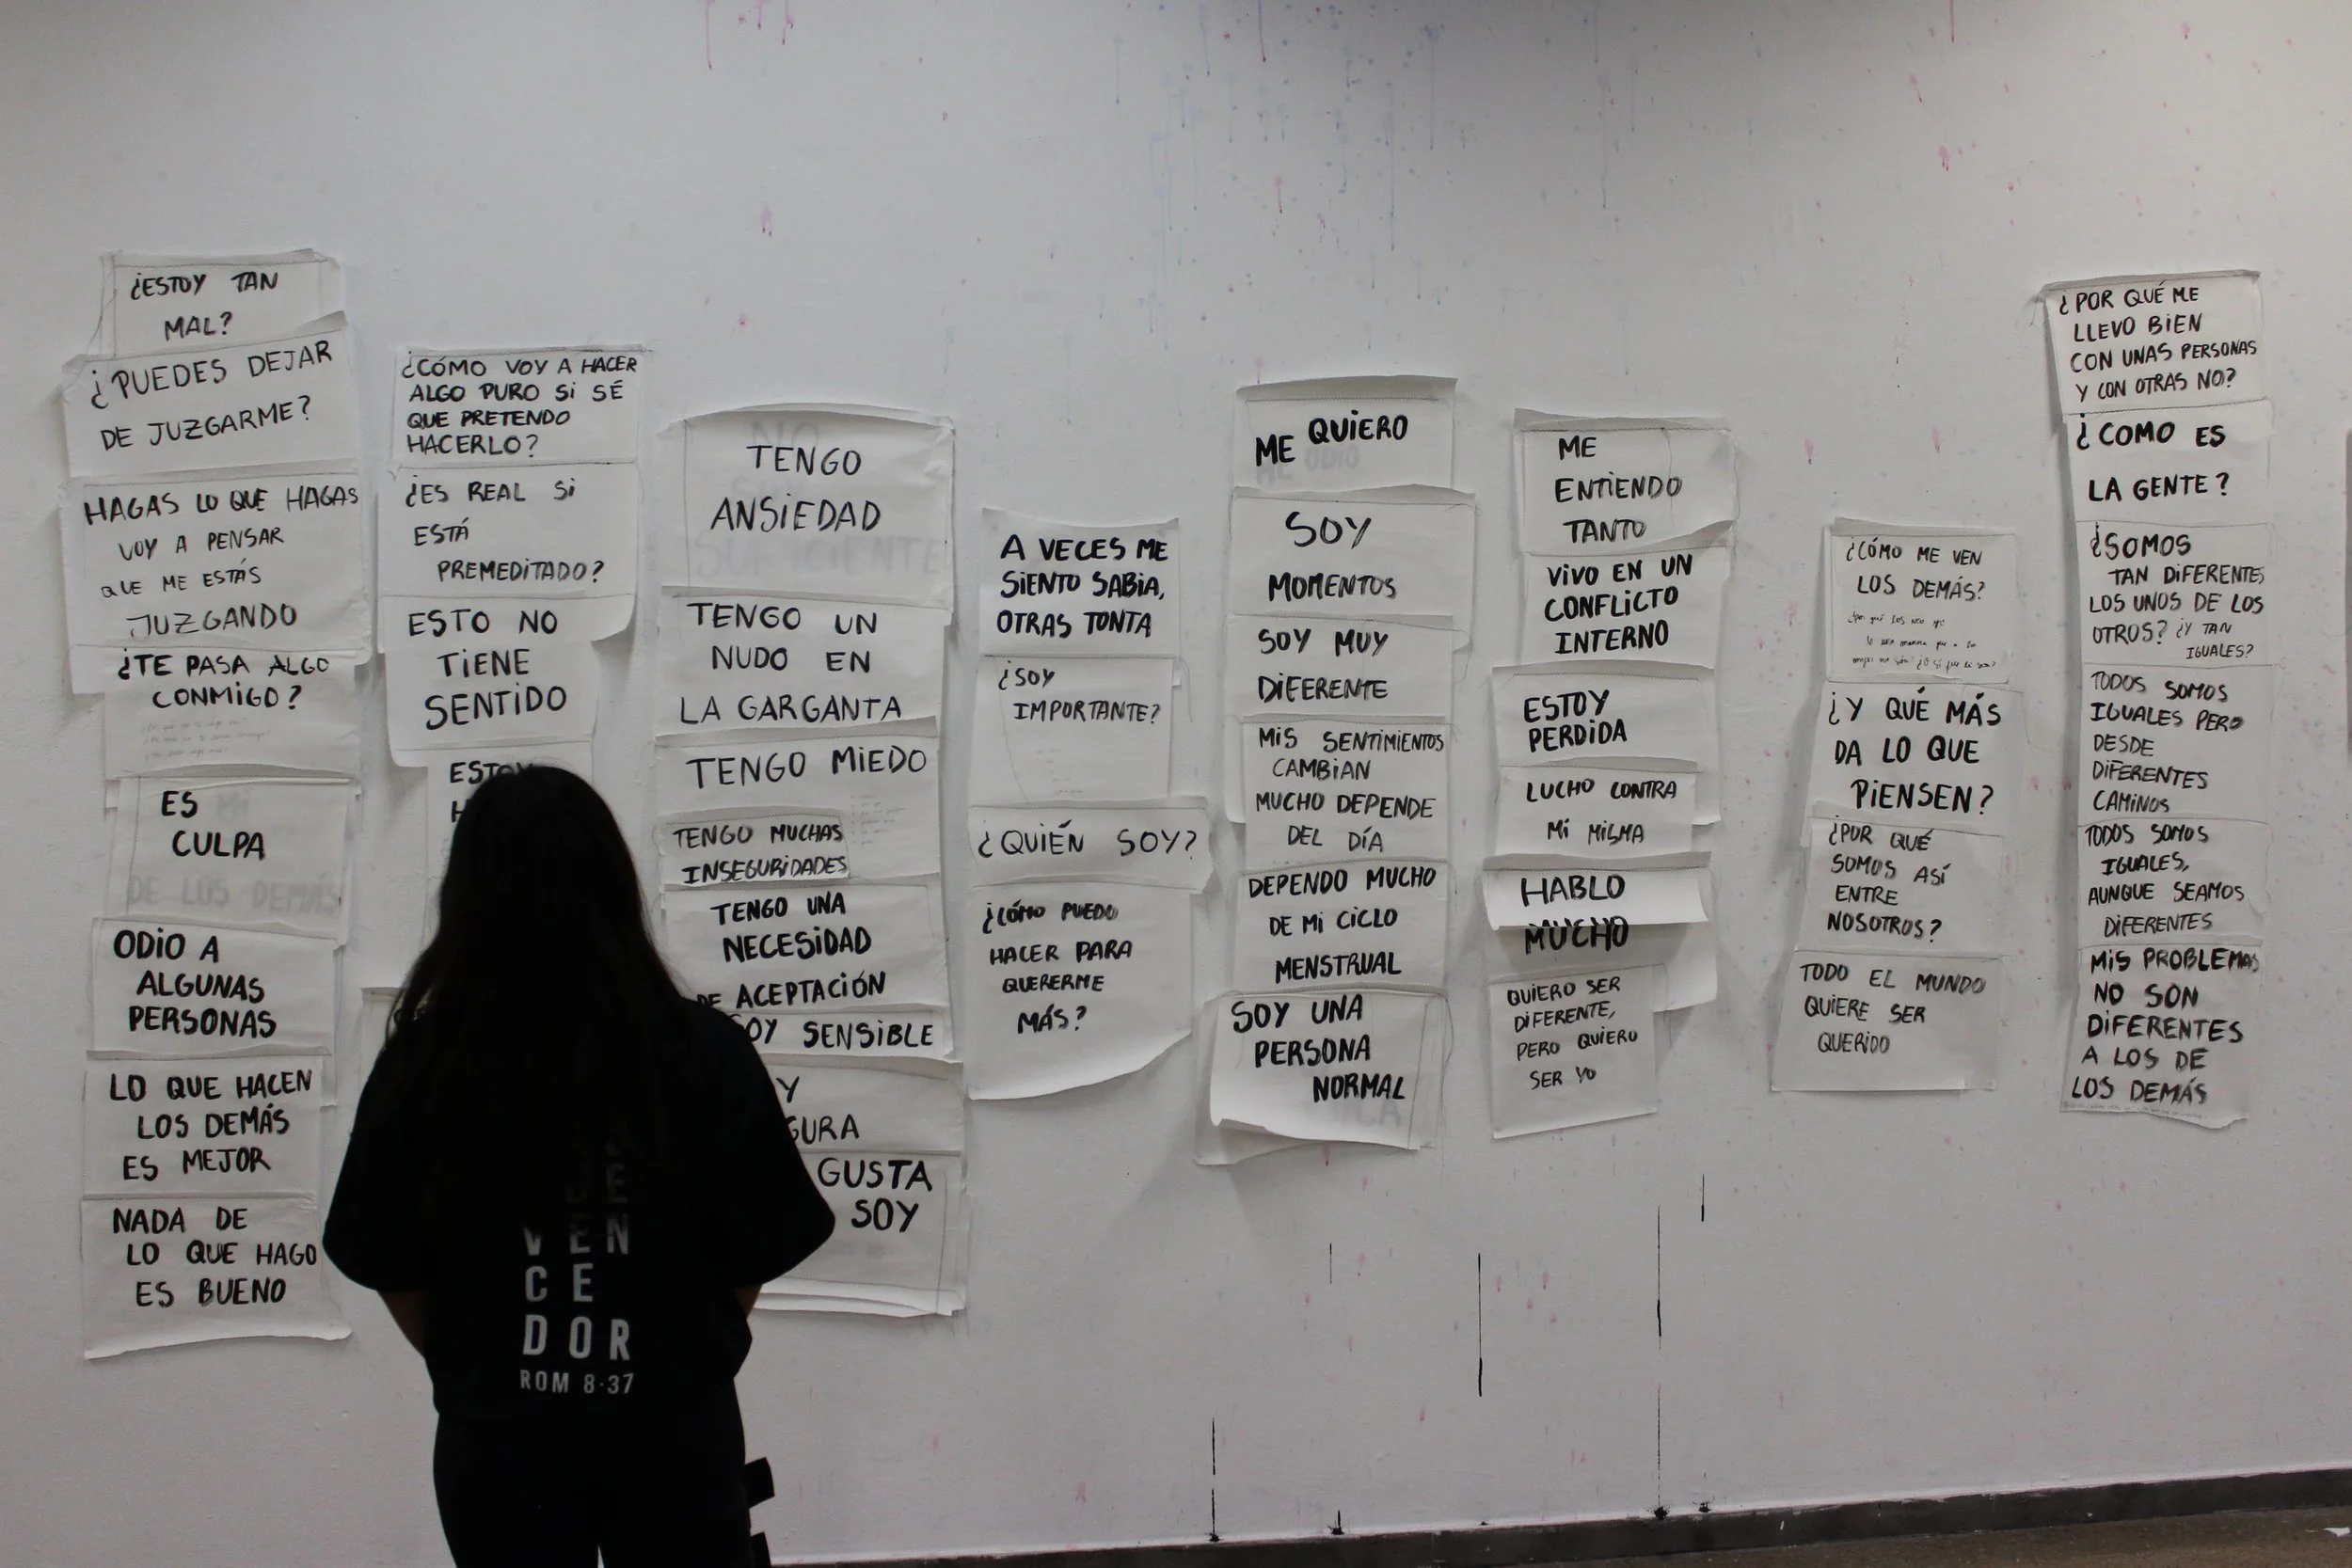 ¿ESTOY TAN
MAL?
¿PUEDES DEJAR
DE JUZGARME?
HAGAS LO QUE HAGAS
VOY A PENSAR
QUE ME ESTÁS
JUZGANDO
¿TE PASA ALGO
CONMIGO?
ES
CULPA
DE LOS DEMÁS
ODIO A
ALGUNAS
PERSONAS
LO QUE HACEN
LOS DEMÁS
ES MEJOR
NADA DE
LO QUE HAGO
ES BUENO
¿CÓMO VOY A HACER
ALGO PURO SI SÉ
QUE PRETENDO
HACERLO?
¿ES REAL SI
ESTÁ
PREMEDITADO?
ESTO NO
TIENE
SENTIDO
ESTOY
H
TENGO
ANSIEDAD
SUFICIENTE
TENGO UN
NUDO EN
LA GARGANTA
TENGO MIEDO
TENGO MUCHAS
INSEGURIDADES
TENGO UNA
NECESIDAD
DE ACEPTACIÓN
SOY SENSIBLE
Y
GURA
GUSTA
SOY
A VECES ME
SIENTO SABIA,
OTRAS TONTA
¿SOY
IMPORTANTE?
¿QUIÉN SOY?
¿CÓMO PUEDO
HACER PARA
QUERERME
MÁS?
ME QUIERO
ME ODIO
SOY
MOMENTOS
SOY MUY
DIFERENTE
MIS SENTIMIENTOS
CAMBIAN
MUCHO DEPENDE
DEL DÍA
DEPENDO MUCHO
DE MI CICLO
MENSTRUAL
SOY UNA
PERSONA
NORMAL
ME
ENTIENDO
TANTO
VIVO EN UN
CONFLICTO
INTERNO
ESTOY
PERDIDA
LUCHO CONTRA
MI MISMA
HABLO
MUCHO
QUIERO SER
DIFERENTE,
PERO QUIERO
SER YO
¿CÓMO ME VEN
LOS DEMÁS?
¿Y QUÉ MÁS
DA LO QUE
PIENSEN?
¿POR QUÉ
SOMOS ASÍ
ENTRE
NOSOTROS?
TODO EL MUNDO
QUIERE SER
QUERIDO
¿POR QUÉ ME
LLEVO BIEN
CON UNAS PERSONAS
Y CON OTRAS NO?
¿COMO ES
LA GENTE?
¿SOMOS
TAN DIFERENTES
LOS UNOS DE LOS
OTROS? ¿Y TAN
IGUALES?
TODOS SOMOS
IGUALES PERO
DESDE
DIFERENTES
CAMINOS
TODOS SOMOS
IGUALES,
AUNQUE SEAMOS
DIFERENTES
MIS PROBLEMAS
NO SON
DIFERENTES
A LOS DE
LOS DEMÁS
VEN
CE
DOR
ROM 8·37